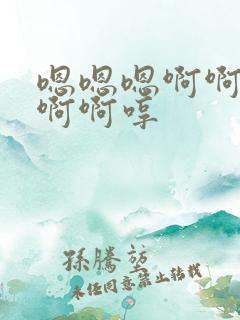 嗯嗯嗯啊啊
啊啊哼
孫騰莹
未经同意禁止转载